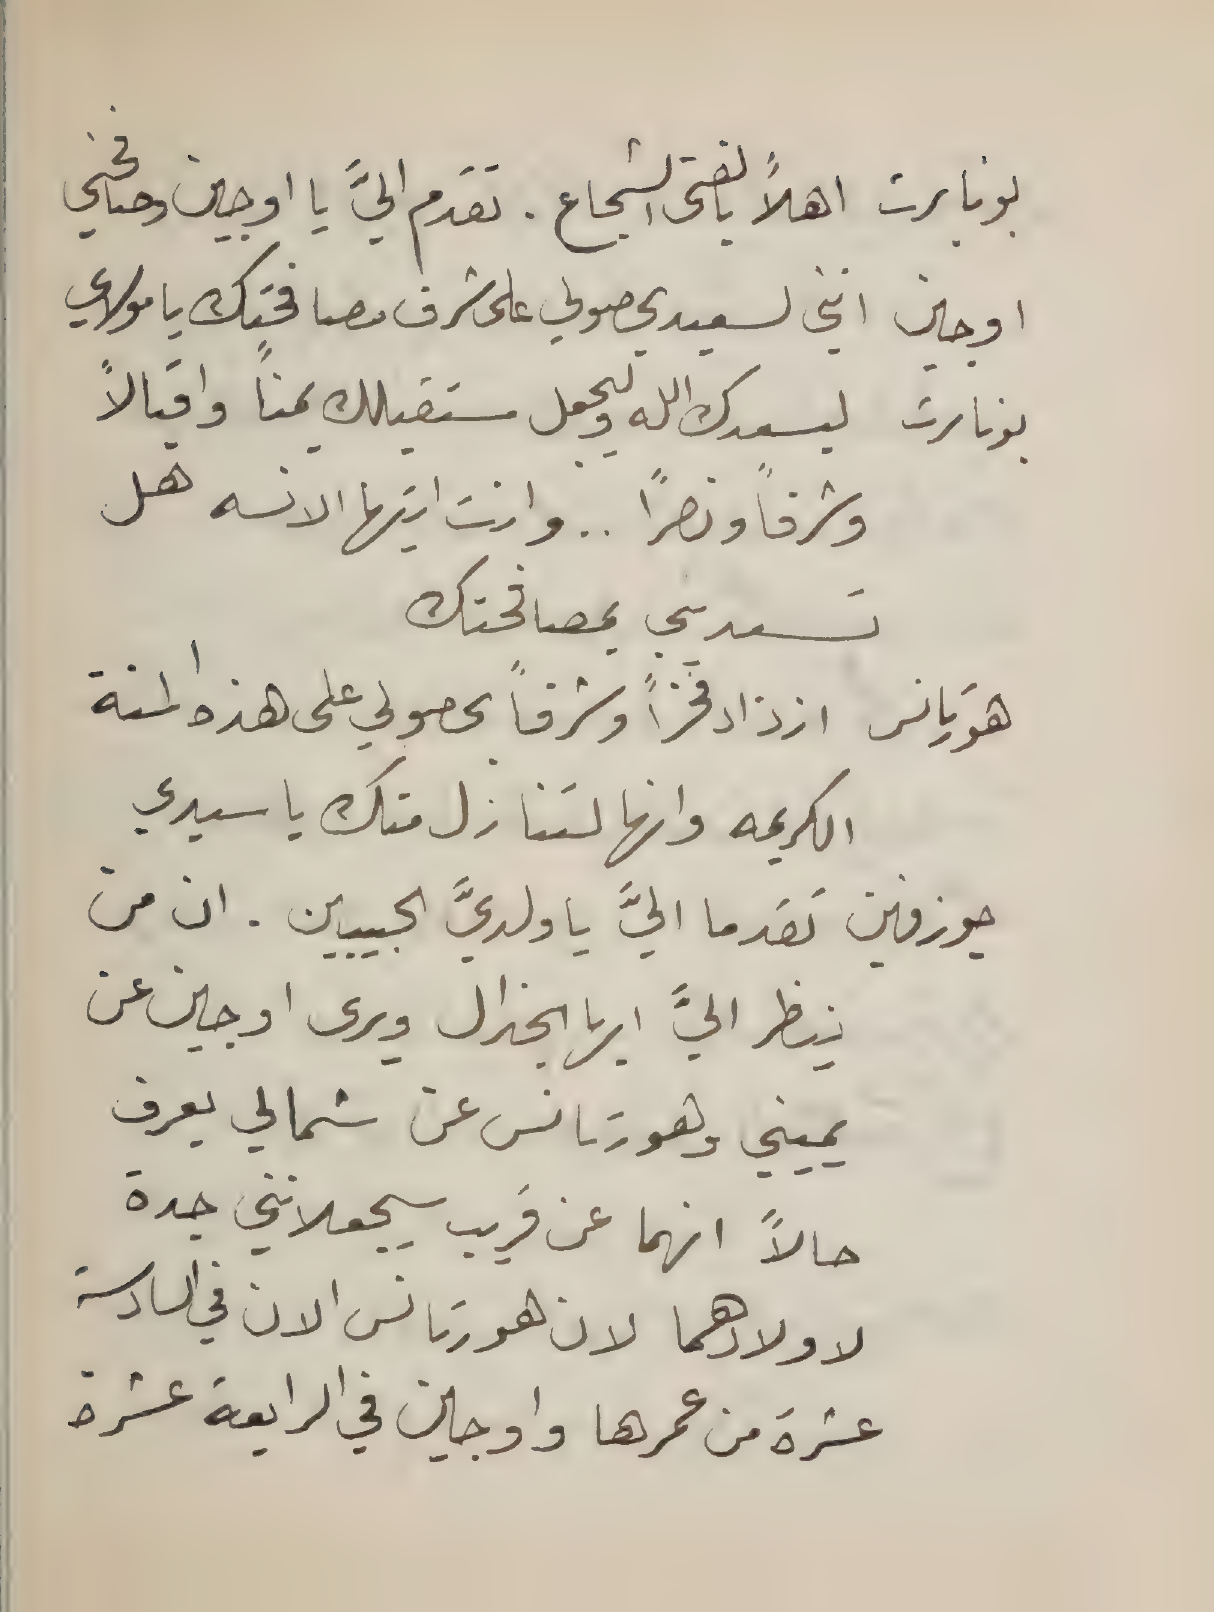 بونابرت اهلاً بالفتى الشجاع . تقدم اليَّ يا اوجين وصافحني
اوجين انني لسعيد بحصولي على شرف مصافحتك يا مولاي
بونابرت ليسعدك الله وليجعل مستقبلك يمناً واقبالاً
وشرفاً ونصراً .. وانت ايتها الانسه هل
تسعديني بمصافحتك
هورتانس ازداد فخراً وشرفاً بحصولي على هذه المنة
الكريمه وانها لتنازل منك يا سيدي
جوزفين تقدما اليَّ يا ولديَّ الحبيبين . ان من
ينظر اليَّ ايها الجنرال ويرى اوجين عن
يميني وهورتانس عن شمالي يعرف
حالاً انهما عن قريب سيجعلانني جدة
لاولادهما لان هورتانس الان في السادسة
عشرة من عمرها واوجين في الرابعة عشرة